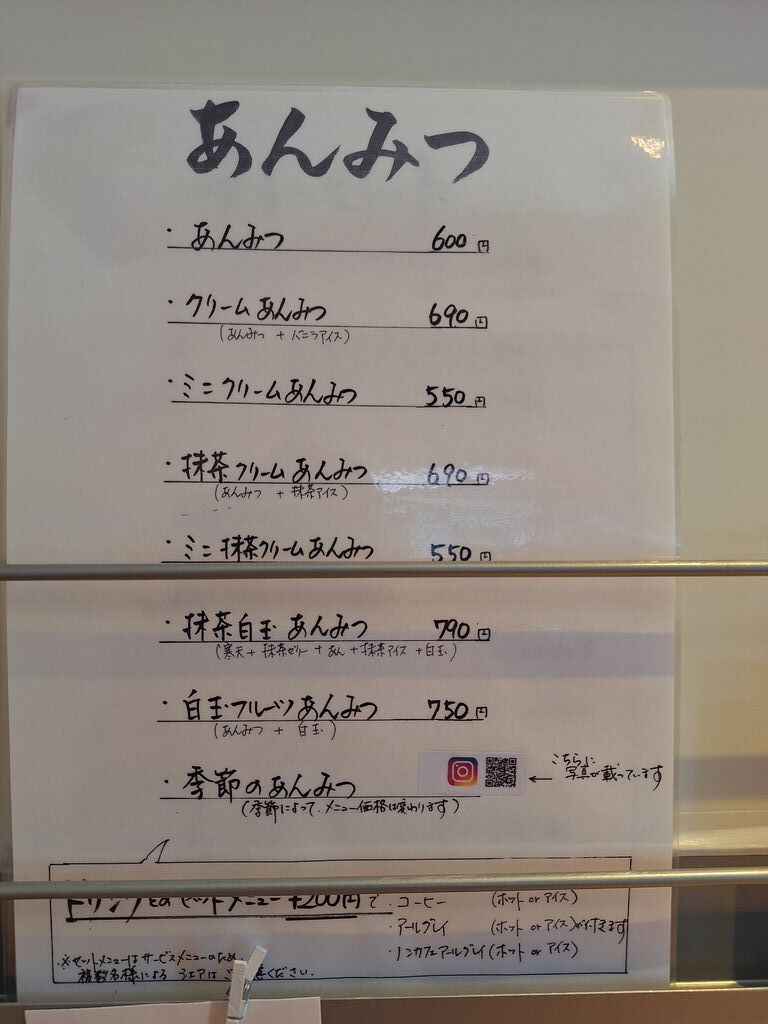 あんみつ
・あんみつ 600円
・クリームあんみつ 690円
(あんみつ + バニラアイス)
・ミニクリームあんみつ 550円
・抹茶クリームあんみつ 690円
(あんみつ + 抹茶アイス)
・ミニ抹茶クリームあんみつ 550円
・抹茶白玉あんみつ 790円
(寒天+抹茶ゼリー+あん+抹茶アイス+白玉)
・白玉フルーツあんみつ 750円
(あんみつ + 白玉)
・季節のあんみつ
←こちらに
写真が載っています
(季節によって、メニュー価格は変わります)
ドリンクとのセットメニュー +200円で
・コーヒー (ホット or アイス)
・アールグレイ (ホット or アイス)が付きます
・ノンカフェアールグレイ (ホット or アイス)
※セットメニューはサービスメニューのため
複数名様によるシェアはご ください。